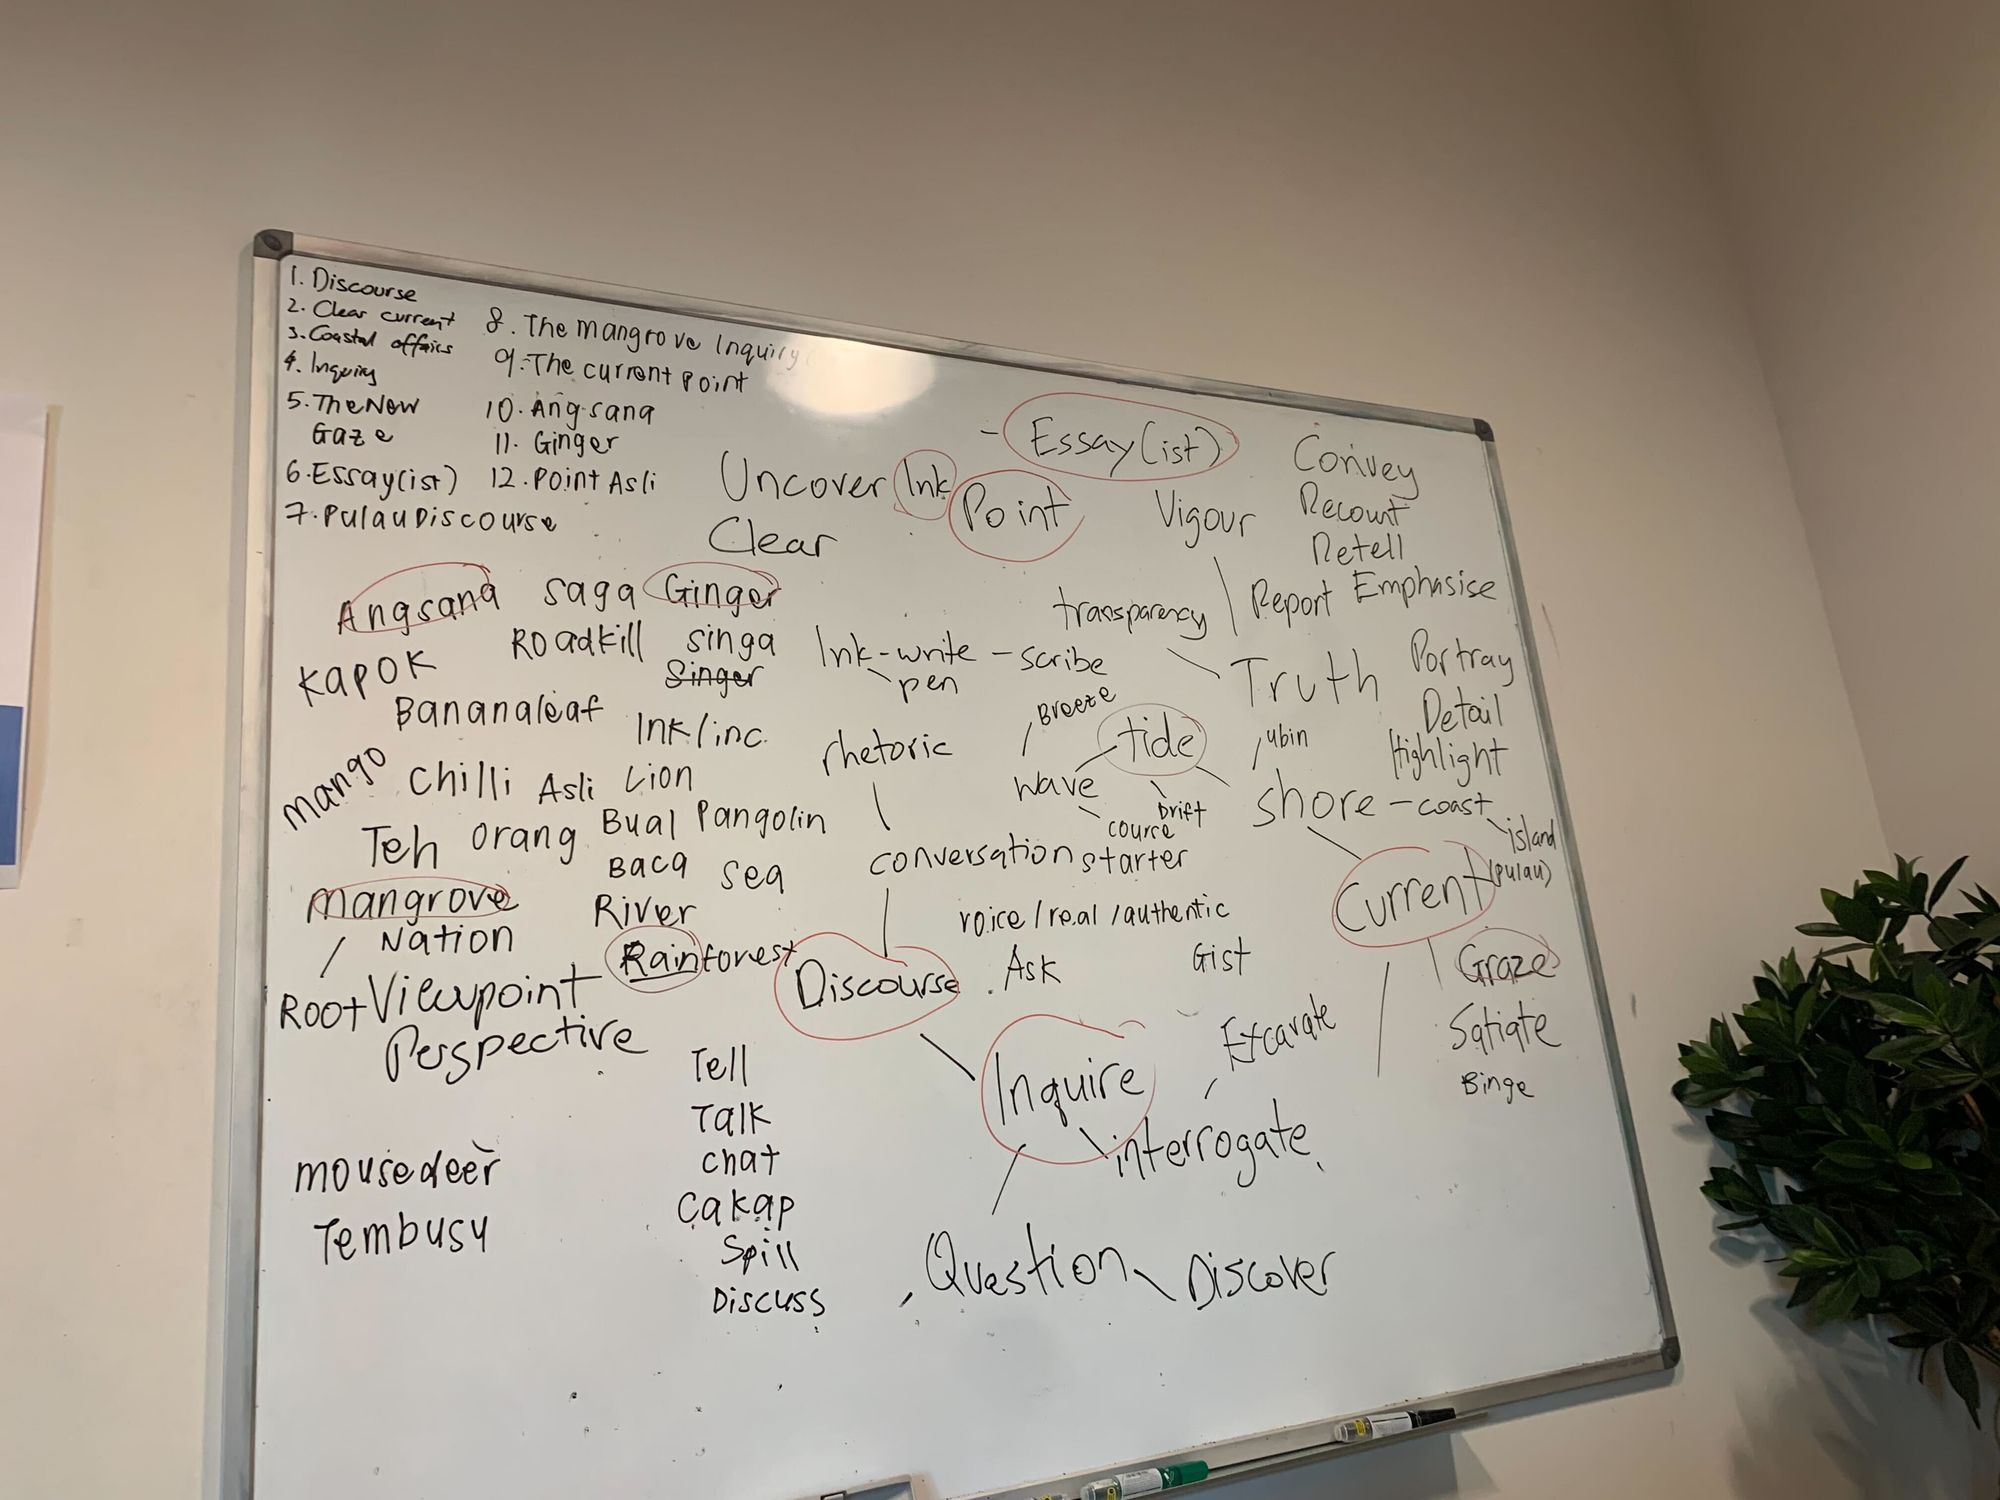 1. Discourse
2. Clear current
3. Coastal affairs
4. Inquiry
5. The New
Gaze
6. Essay(ist)
7. Pulau Discourse
8. The Mangrove Inquiry
9. The current point
10. Angsana
11. Ginger
12. Point Asli
- Essay(ist)
Uncover Ink
Point
Clear
Vigour
Convey
Recount
Retell
Report Emphasise
Portray
Detail
Highlight
transparency
Truth
Angsana saga Ginger
Kapok Roadkill singa
Singer
Bananaleaf Ink/inc.
mango Chilli Asli Lion
Teh orang Bual Pangolin
Baca sea
mangrove River
Nation Rainforest
Root Viewpoint
Perspective
Ink - write - scribe
pen
rhetoric
conversation starter
Breeze
tide
wave
Drift
course
ubin
shore - coast
island
(pulau)
Current
voice / real / authentic
Ask Gist
Discourse
Graze
Satiate
Binge
Inquire
Excavate
interrogate
Question Discover
Tell
Talk
chat
Cakap
Spill
Discuss
mousedeer
Tembusu